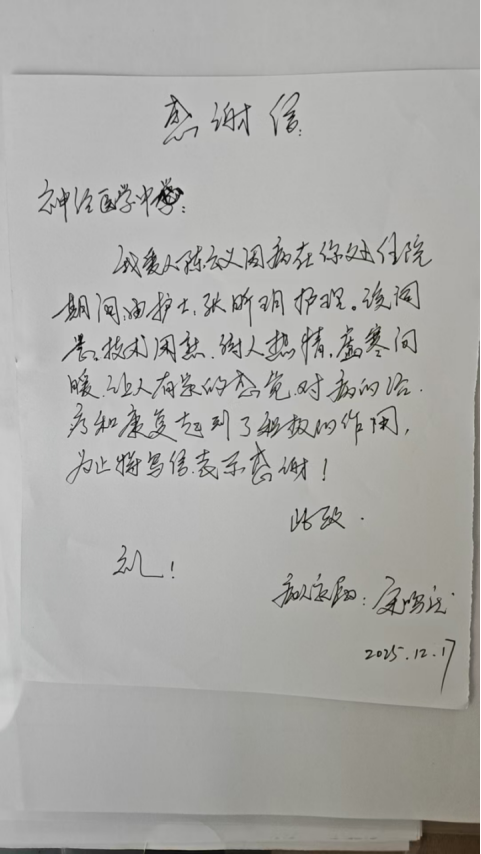 感谢信:
神经医学中心:
我爱人陈云义因病在你处住院
期间,由护士张昕玥护理。该同
志技术娴熟,待人热情,嘘寒问
暖,让人有家的感觉,对病的治
疗和康复起到了积极的作用,
为此特写信表示感谢!
此致
礼!
病人家属:
2025.12.17